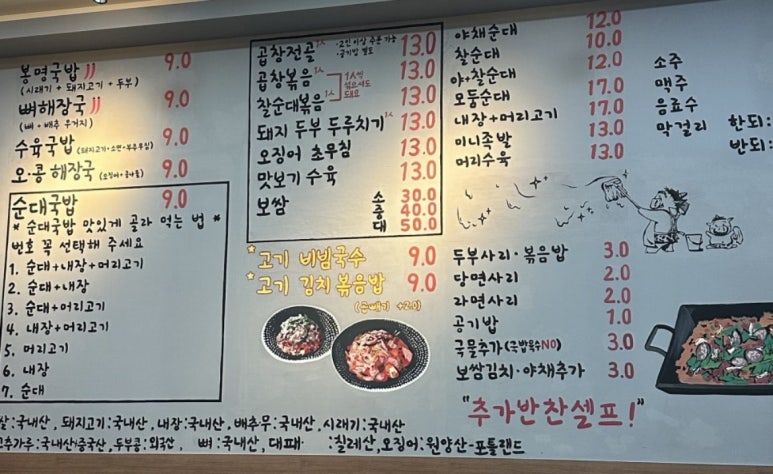 봉명국밥 9.0
(시래기 + 돼지고기 + 두부)
뼈해장국 9.0
(뼈 + 배추 우거지)
수육국밥 9.0
오·콩 해장국 9.0
순대국밥 9.0
* 순대국밥 맛있게 골라 먹는 법 *
번호 꼭 선택해 주세요
1. 순대+내장+머리고기
2. 순대+내장
3. 순대+머리고기
4. 내장+머리고기
5. 머리고기
6. 내장
7. 순대
곱창전골 1人 13.0
곱창볶음 1人 13.0
찰순대볶음 1人 13.0
돼지 두부 두루치기 1人 13.0
오징어 초무침 13.0
맛보기 수육 13.0
보쌈 소 30.0
중 40.0
대 50.0
고기 비빔국수 9.0
고기 김치볶음밥 9.0
(곱빼기 +2.0)
야채순대 12.0
찰순대 10.0
야+찰순대 12.0
모둠순대 17.0
내장+머리고기 17.0
미니족발 13.0
머리수육 13.0
소주
맥주
음료수
막걸리 한되:
반되:
두부사리·볶음밥 3.0
당면사리 2.0
라면사리 2.0
공기밥 1.0
국물추가(국밥육수NO) 3.0
보쌈김치·야채추가 3.0
"추가반찬셀프!"
쌀:국내산, 돼지고기:국내산, 내장:국내산, 배추무:국내산, 시래기:국내산
고추가루:국내산·중국산, 두부콩:외국산, 뼈:국내산, 대패 :칠레산, 오징어:원양산-포틀랜드